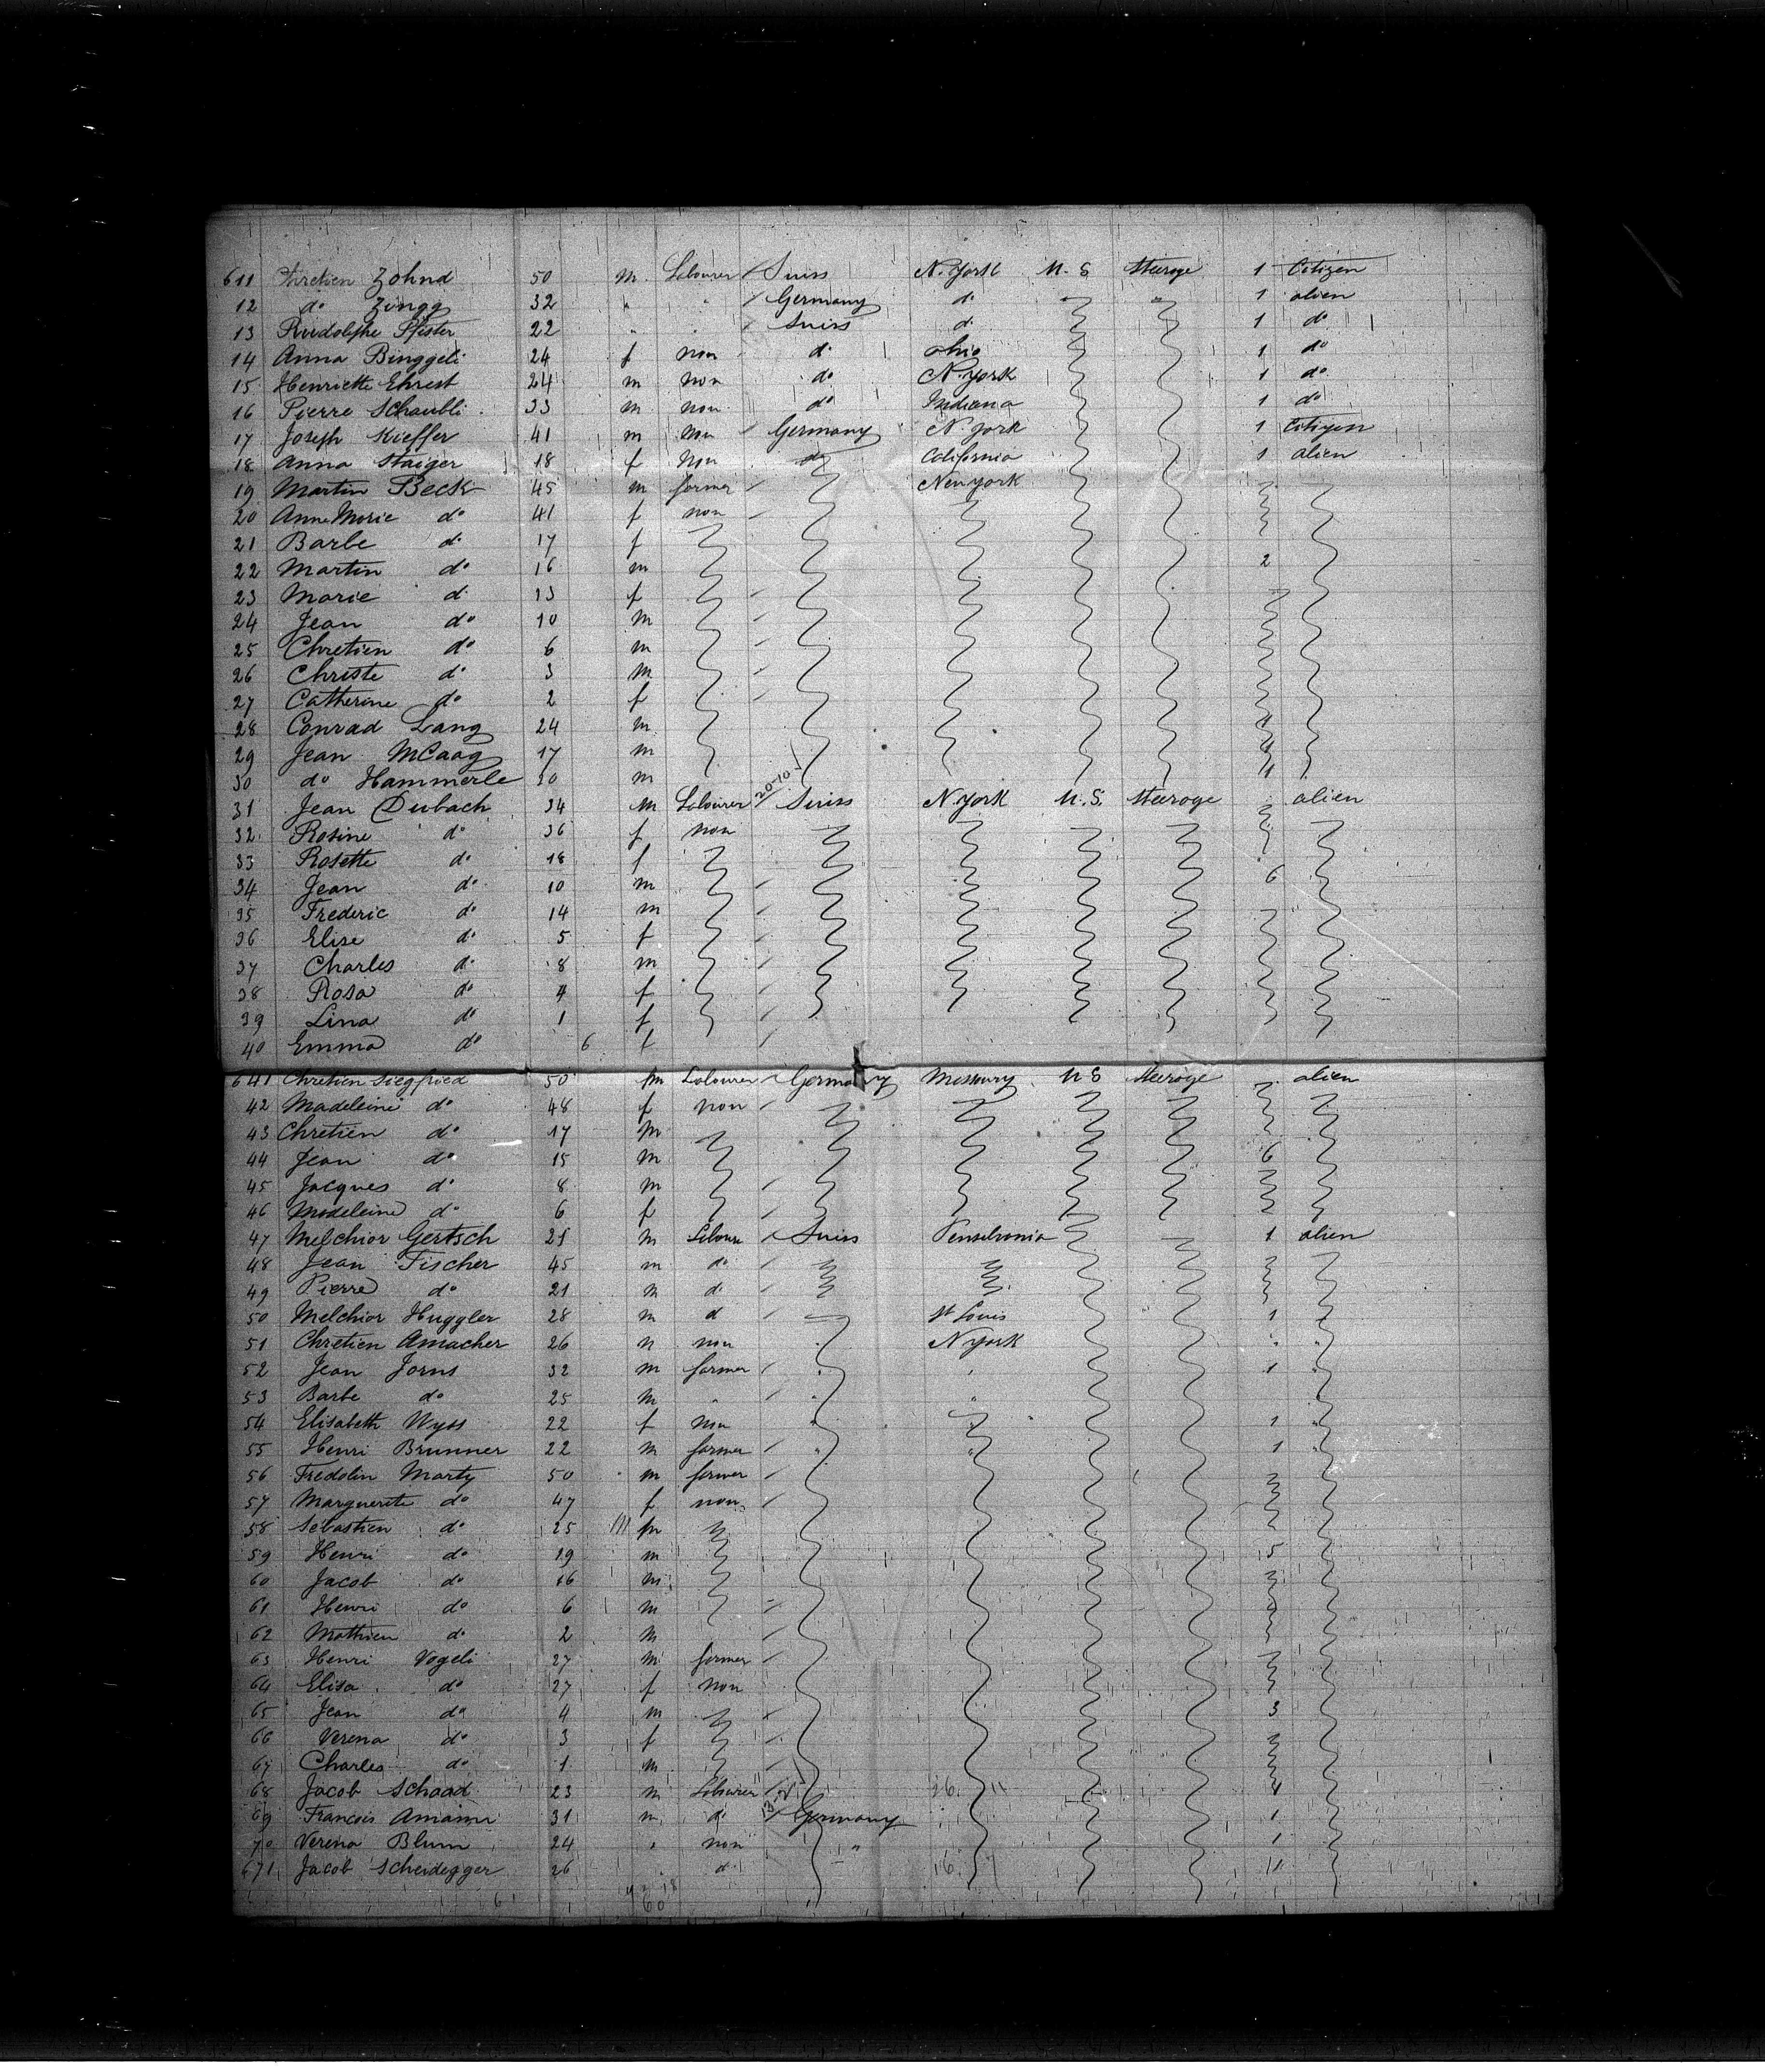 611 Chretien Zohnd 50 m. Labourer Suiss N. York U. S Steerage 1 Citizen
12 do Zingg 32 " " Germany do 1 alien
13 Rudolphe Pfister 22 " " Suiss d. 1 do
14 Anna Binggeli 24 f non do ohio 1 do
15 Henriette Ehrest 24 m non do N. york 1 do
16 Pierre Schaubli 33 m non do Indiana 1 do
17 Joseph Kieffer 41 m non Germany N. york 1 Citizen
18 Anna Staiger 18 f non do California 1 alien
19 Martin Beck 45 m farmer New york
20 Anne Marie do 41 f non
21 Barbe do 17 f
22 Martin do 16 m 2
23 Marie d. 13 f
24 Jean do 10 m
25 Chretien do 6 m
26 Christe do 3 m
27 Catherine do 2 f
28 Conrad Lang 24 m 1
29 Jean McCaag 17 m 1
30 do Hammerle 30 m 1
20-10
31 Jean Dubach 34 m Labourer Suiss N. york U. S. Steerage alien
32 Rosine do 36 f non
33 Rosette do 18 f
34 Jean do 10 m 6
35 Frederic do 14 m
36 Elise do 5 f
37 Charles do 8 m
38 Rosa do 4 f
39 Lina do 1 f
40 Emma do 6 f
641 Chretien Siegfried 50 m Labourer Germany Missoury U S Steerage alien
42 Madeleine do 48 f non
43 Chretien do 17 m
44 Jean do 15 m 6
45 Jacques do 8 m
46 Madeleine do 6 f
47 Melchior Gertsch 21 m Laboure Suiss Penselvania 1 alien
48 Jean Fischer 45 m do
49 Pierre do 21 m do
50 Melchior Huggler 28 m d St Louis 1
51 Chretien Amacher 26 m non N york "
52 Jean Jorns 32 m farmer 1
53 Barbe do 25 m "
54 Elisabeth Wyss 22 f non 1
55 Henri Brunner 22 m farmer " " 1 "
56 Fredolin Marty 50 m farmer
57 Marguerite do 47 f non
58 Sébastien do 25 m
59 Henri do 19 m 5
60 Jacob do 16 m
61 Henri do 6 m
62 Mathieu do 2 m
63 Henri Vogeli 27 m farmer
64 Elisa do 27 f non
65 Jean do 4 m 3
66 Verena do 3 f
67 Charles do 1 m
68 Jacob Schaad 23 m Labourer 16 1
69 Francois Amann 31 m d Germany 1
70 Verena Blum 24 " non " 1
671 Jacob Scheidegger 26 d. 16
60